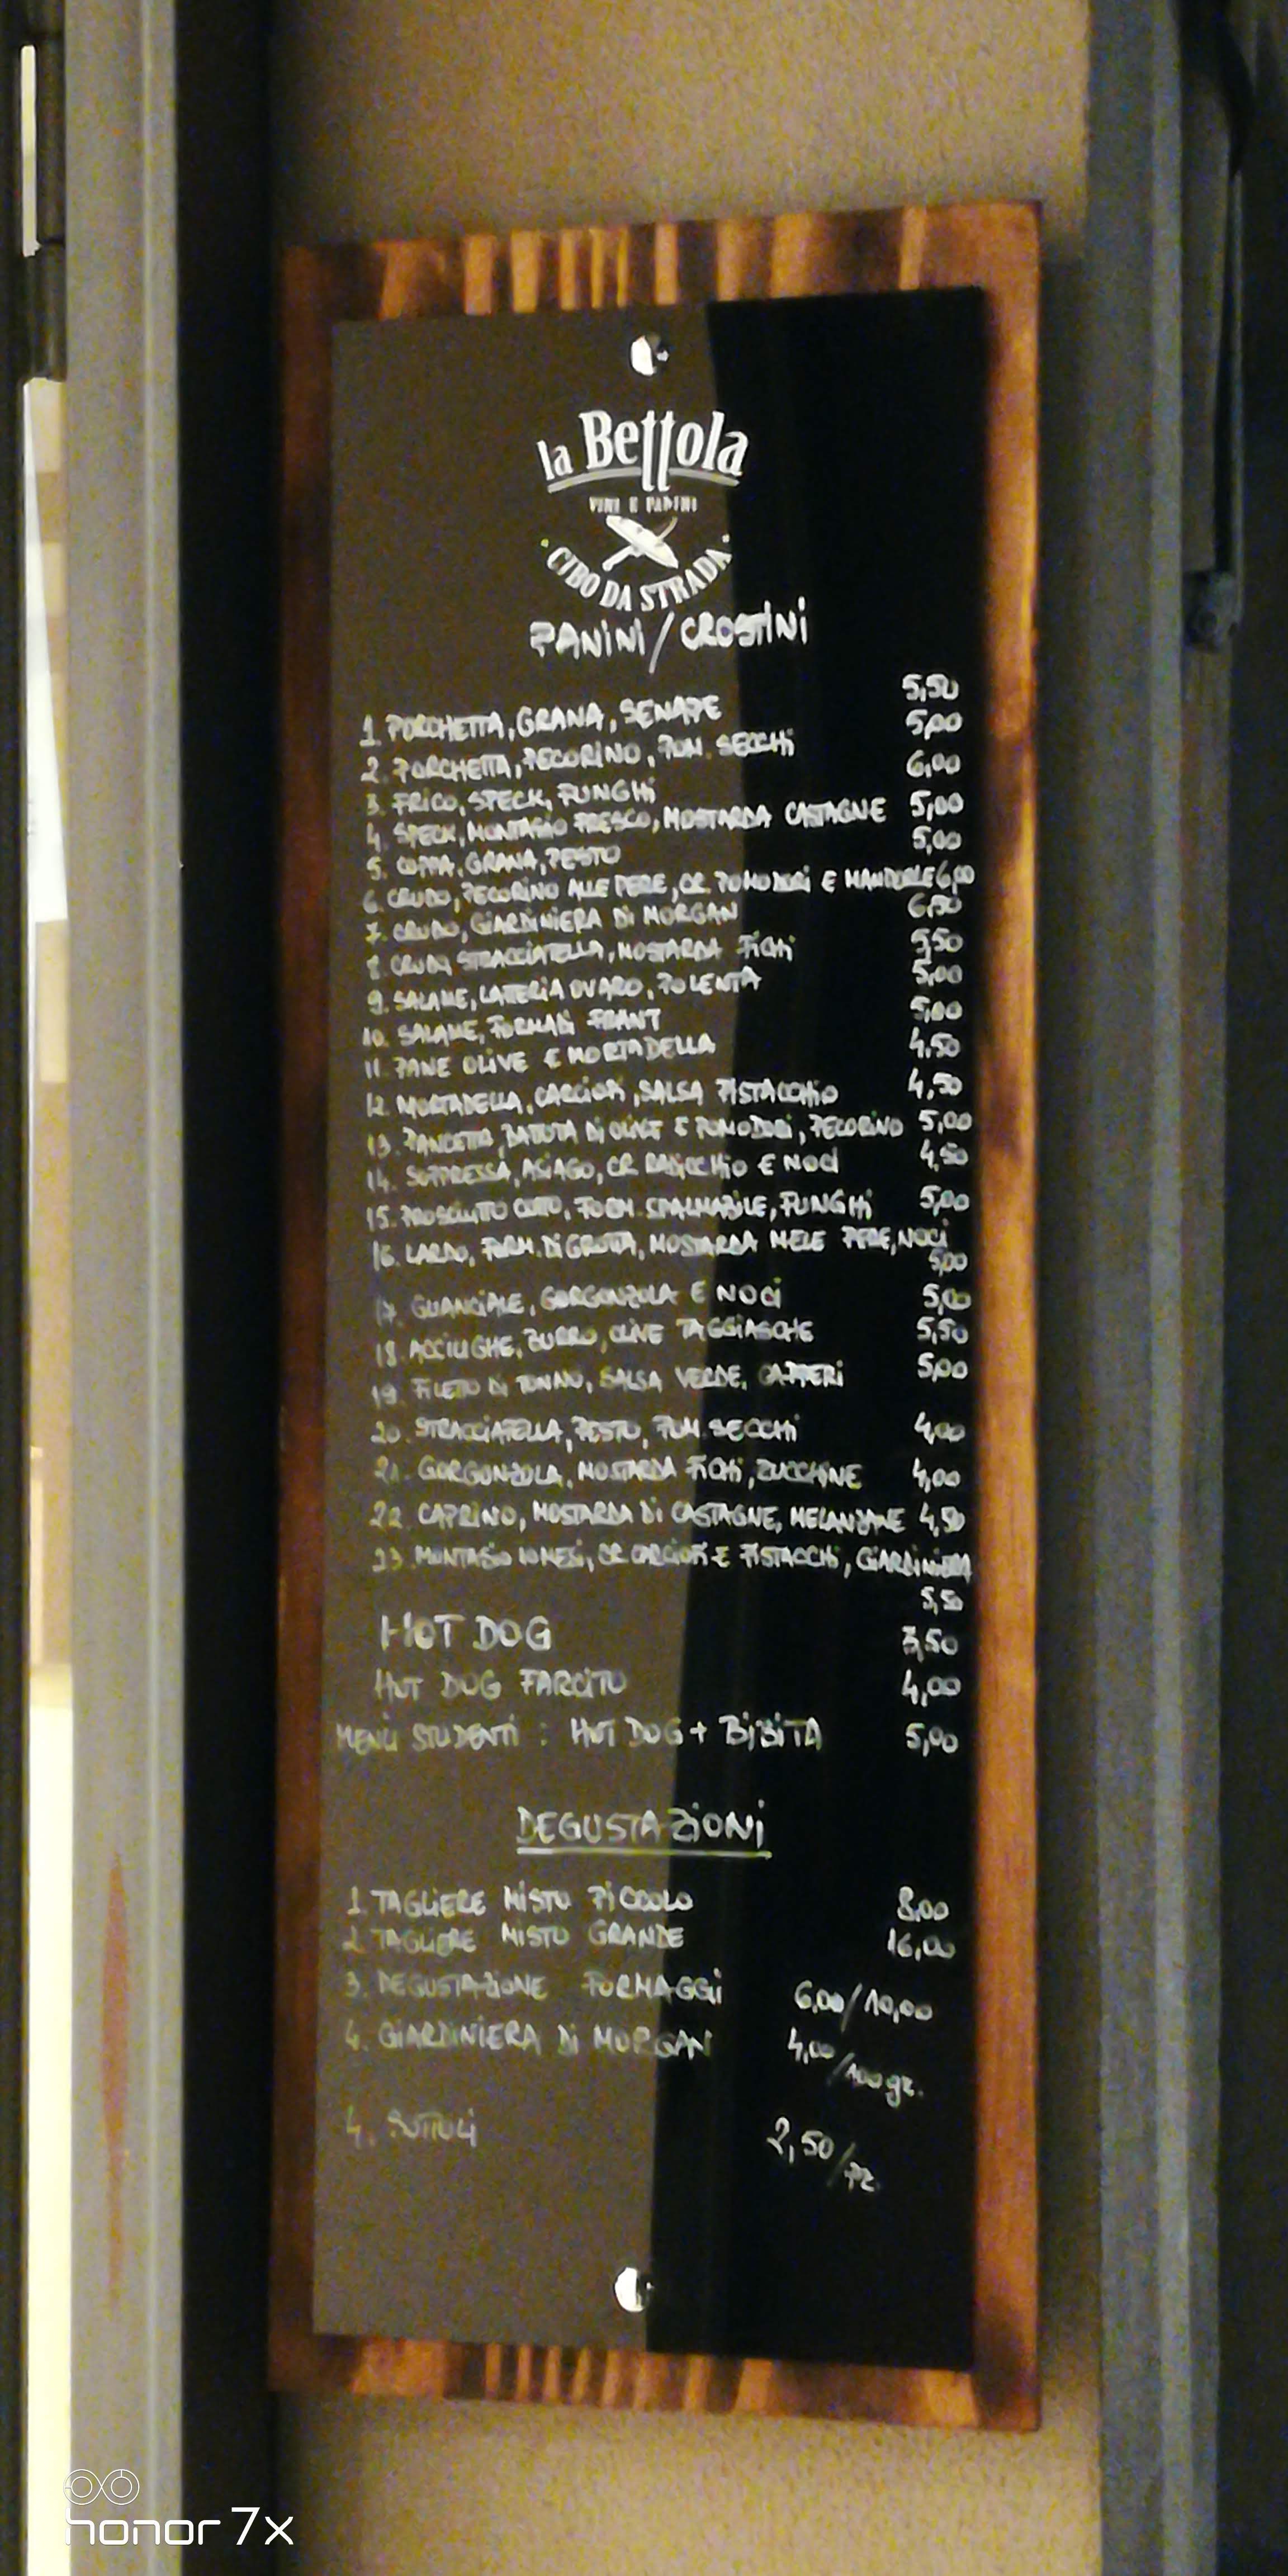 la Bettola
VINI E PANINI
CIBO DA STRADA
PANINI / CROSTINI
1. PORCHETTA, GRANA, SENAPE 5,50
2. PORCHETTA, PECORINO, POM. SECCHI 5,00
3. FRICO, SPECK, FUNGHI 6,00
4. SPECK, MONTASIO FRESCO, MOSTARDA CASTAGNE 5,00
5. COPPA, GRANA, PESTO 5,00
6. CRUDO, PECORINO ALLE PERE, CR. POMODORI E MANDORLE 6,00
7. CRUDO, GIARDINIERA DI MORGAN
8. CRUDO, STRACCIATELLA, MOSTARDA FICHI 5,50
9. SALAME, LATTERIA OVARO, POLENTA 5,00
10. SALAME, FORMADI FRANT 5,00
11. PANE OLIVE E MORTADELLA 4,50
12. MORTADELLA, CARCIOFI, SALSA PISTACCHIO 4,50
13. PANCETTA, BATTUTA DI OLIVE E POMODORI, PECORINO 5,00
14. SOPPRESSA, ASIAGO, CR. RADICCHIO E NOCI 4,50
15. PROSCIUTTO COTTO, FORM. SPALMABILE, FUNGHI 5,00
16. LARDO, FORM. DI GROTTA, MOSTARDA MELE PERE, NOCI
5,00
17. GUANCIALE, GORGONZOLA E NOCI 5,00
18. ACCIUGHE, BURRO, OLIVE TAGGIASCHE 5,50
19. FILETTO DI TONNO, SALSA VERDE, CAPPERI 5,00
20. STRACCIATELLA, PESTO, POM. SECCHI 4,00
21. GORGONZOLA, MOSTARDA FICHI, ZUCCHINE 4,00
22. CAPRINO, MOSTARDA DI CASTAGNE, MELANZANE 4,50
23. MONTASIO, CR. CARCIOFI E PISTACCHI, GIARDINIERA
5,50
HOT DOG 3,50
HOT DOG FARCITO 4,00
MENÙ STUDENTI : HOT DOG + BIBITA 5,00
DEGUSTAZIONI
1. TAGLIERE MISTO PICCOLO 8,00
2. TAGLIERE MISTO GRANDE 16,00
3. DEGUSTAZIONE FORMAGGI 6,00/10,00
4. GIARDINIERA DI MORGAN 4,00/100gr.
4. SOTTOLI 2,50/pz.
honor 7x